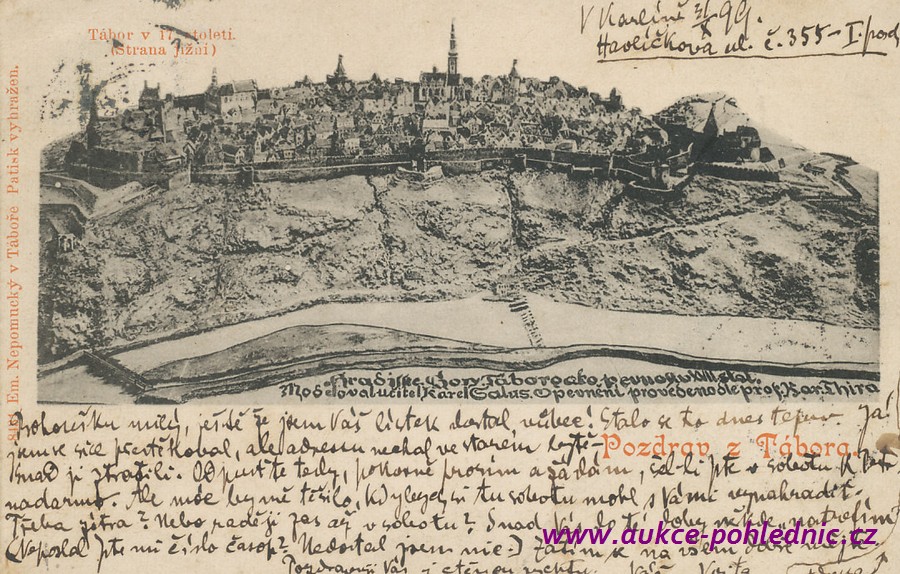 Tábor v 17. století.
(Strana jižní)
V Karlíně 99.
Havlíčkova ul. č. 355 - I. pod
Em. Nepomucký v Táboře Patisk vyhražen.
Hradiště Hory Tábor jako pevnost v XVII. stol.
Modeloval učitel Karel Salus. Opevnění provedeno dle prof. Kar. Thira
Pozdrav z Tábora.
Bohoušku milý, ještě že jsem Váš lístek dostal vůbec! Stalo se to dnes teprv. Já
jsem se sice přestěkoval, ale adresu nechal ve starém bytě,
snad ji ztratili. Odpusťte tedy, pokorně prosím a žádám, šel-li jste v sobotu k
nadarmo. Ale moc by mě těšilo, kdyby si tu sobotu mohl s Vámi vynahradit.
Třeba zítra? Nebo raději zas až v sobotu? Snad Vás do té doby někde "natrefím"
(Neposlal jste mi číslo časop? Nedostal jsem nic.) Zatím
Pozdravuji Vás
www.aukce-pohlednic.cz